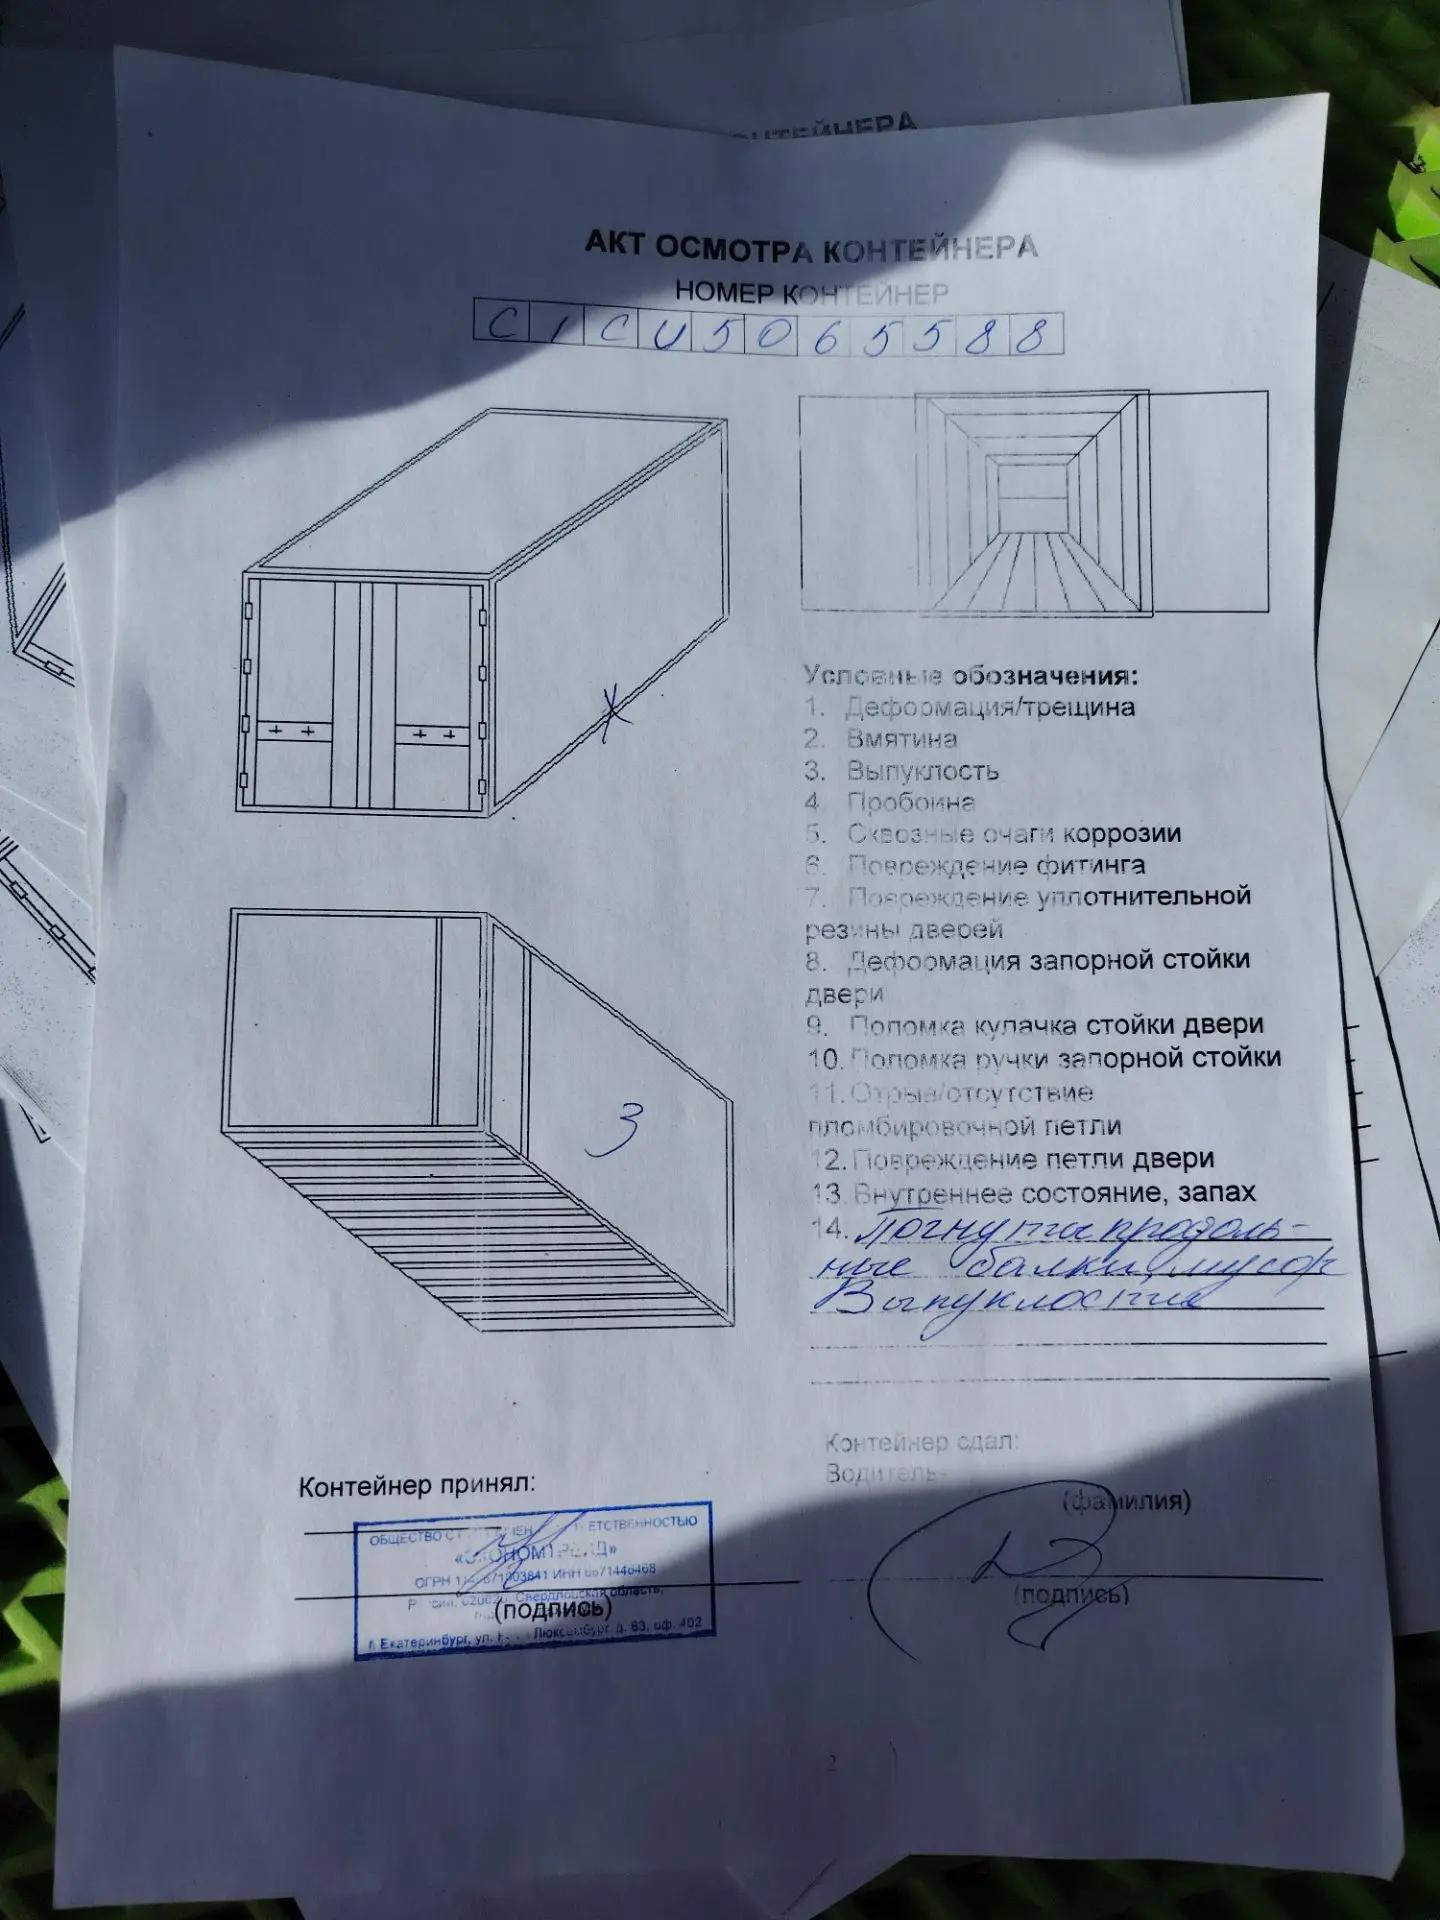 КОНТЕЙНЕРА
АКТ ОСМОТРА КОНТЕЙНЕРА
НОМЕР КОНТЕЙНЕР
CICU5065588
Условные обозначения:
1. Деформация/трещина
2. Вмятина
3. Выпуклость
4. Пробоина
5. Сквозные очаги коррозии
6. Повреждение фитинга
7. Повреждение уплотнительной
резины дверей
8. Деформация запорной стойки
двери
9. Поломка кулачка стойки двери
10. Поломка ручки запорной стойки
3
11. Отрыв/отсутствие
пломбировочной петли
12. Повреждение петли двери
13. Внутреннее состояние, запах
14. Погнуты продоль-
ные балки, мусор
Выпуклости
Контейнер сдал:
Водитель-
Контейнер принял:
(фамилия)
ОБЩЕСТВО С ОТВЕТСТВЕННОСТЬЮ
ИНН 6671446468
Свердловская область,
(подпись)
(подпись)
г. Екатеринбург, ул. Люксембург, д. 63, оф. 402
2